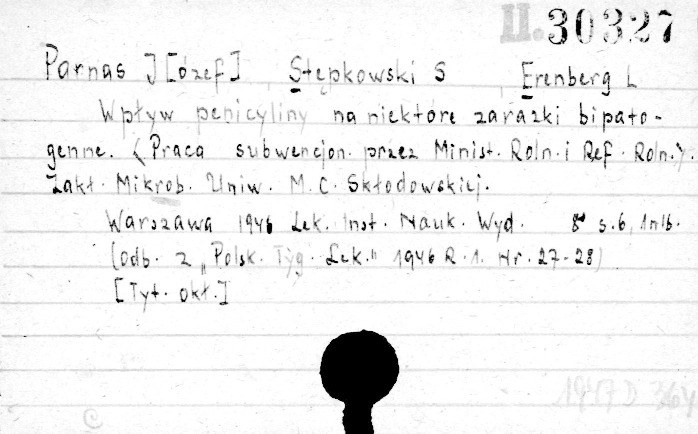 II. 30327
Parnas J [ózef] Stępkowski S , Erenberg L
Wpływ penicyliny na niektóre zarazki bipato-
genne. (Praca subwencjon. przez Minist. Roln. i Ref. Roln.).
Zakł. Mikrob. Uniw. M. C. Skłodowskiej.
Warszawa 1946 Lek. Inst. Nauk. Wyd. 8° s. 6, 1 nlb.
(odb. z „Polsk. Tyg. Lek." 1946 R. 1. Nr. 27-28)
[Tyt. okł.]
1947 D